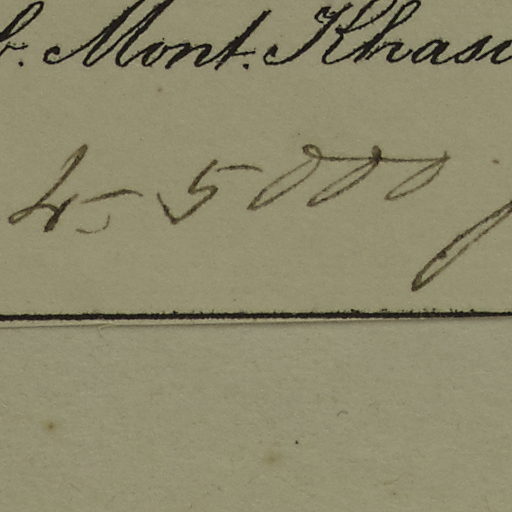 b. Mont. Khasi
4-5000 f